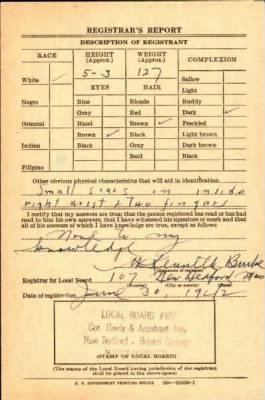 REGISTRAR'S REPORT
DESCRIPTION OF REGISTRANT
RACE HEIGHT (Approx.) WEIGHT (Approx.) COMPLEXION
5-3 127
White ✓ Sallow
EYES HAIR Light
Negro Blue Blonde Ruddy
Gray Red Dark ✓
Oriental Hazel Brown ✓ Freckled
Brown ✓ Black Light brown
Indian Black Gray Dark brown
Bald Black
Filipino
Other obvious physical characteristics that will aid in identification
Small scars on inside
right wrist & two fingers
I certify that my answers are true; that the person registered has read or has had
read to him his own answers; that I have witnessed his signature or mark and that
all of his answers of which I have knowledge are true, except as follows:
None to my
knowledge
Kenneth Burke
(Signature of registrar)
Registrar for Local Board 107 New Bedford Mass
(Number) (City or county) (State)
Date of registration June 30 1942
LOCAL BOARD #107
Cor. Davis & Acushnet Ave.
New Bedford - Bristol County
(STAMP OF LOCAL BOARD)
(The stamp of the Local Board having jurisdiction of the registrant
shall be placed in the above space)
U. S. GOVERNMENT PRINTING OFFICE